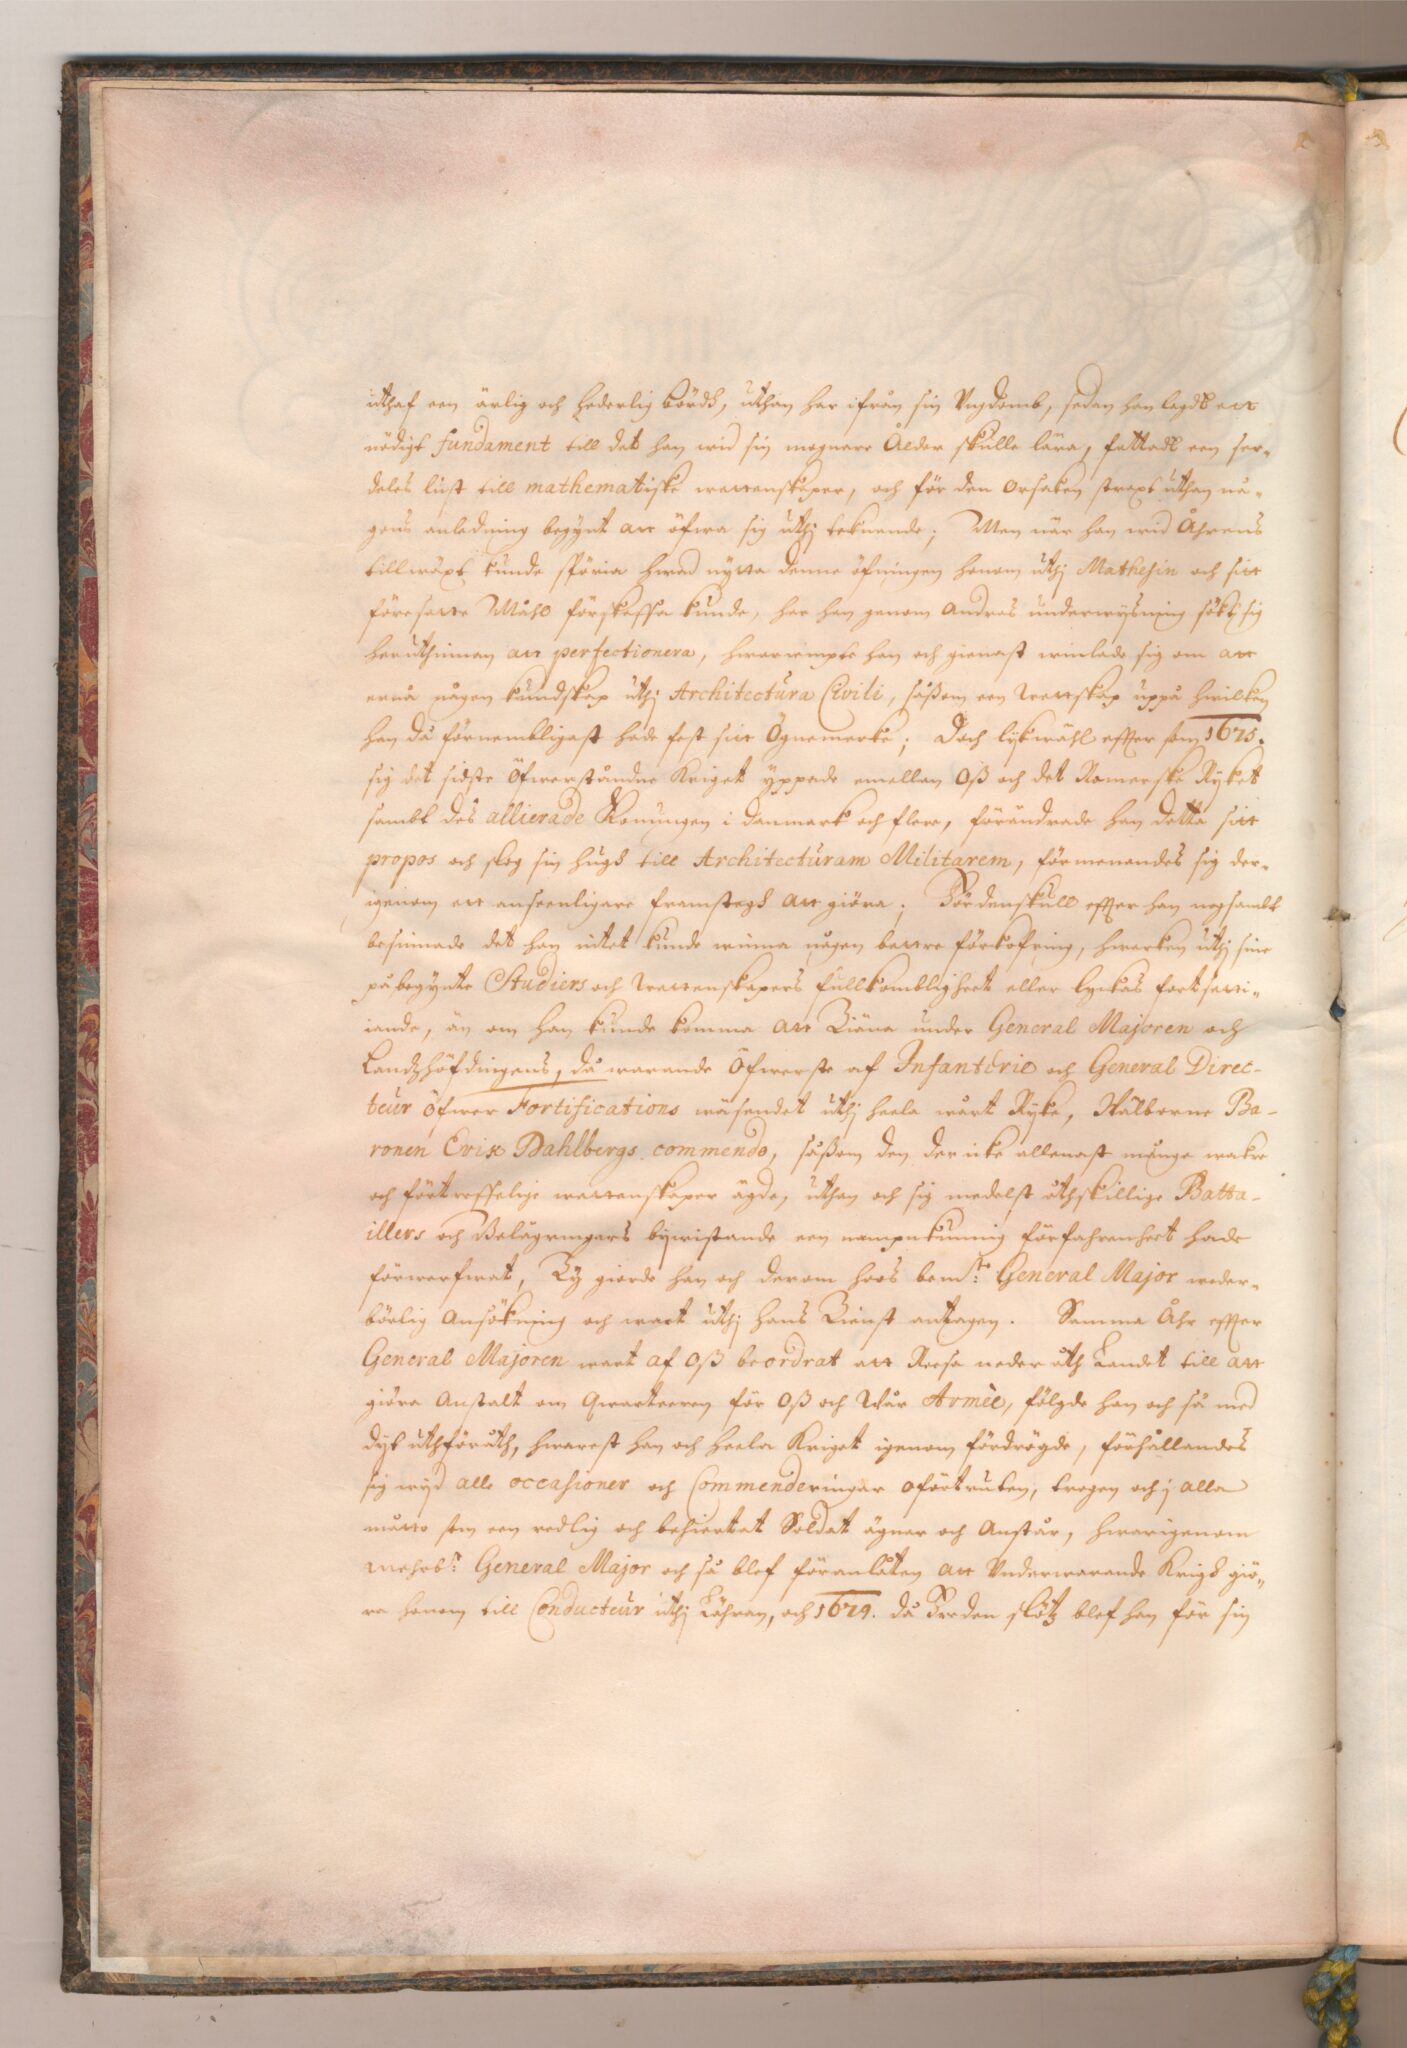 uthaf een ärlig och hederlig börd, uthan har ifrån sin Vngdomb, sedan han lagdt ett
nödigt fundament till det han wid sin mognare Ålder skulle lära, fattadt een ser-
deles lust till mathematiske wettenskaper, och för den orsaken strax uthan nå-
gons anledning begynt att öfwa sig uthj teknande; Men när han wid Åhrens
tillwäxt kunde spöria hwad nytta denne öfningen honom uthj Mathesin och sitt
föresatte Måhl förskaffa kunde, har han genom andras underwysning sökt sig
heruthinnan att perfectionera, hwarjempte han och gienast winlade sig om att
ernå någon kundskap uthj Architectura Civili, såßom een Wettskap uppå hwilken
han då förnembligast hade fest sitt Ögnemerke; Doch lykwähl effter som 1675.
sig det sidste Öfwerståndne Kriget yppade emellan Oß och det Romerske Ryket
sambt des allierade Konungen i Danmark och flere, förändrade han detta sitt
propos och slog sin hugh till Architecturam Militarem, förmenandes sig der-
igenom ett anseenligare framstegh att giöra; Fördenskull effter han nogsambt
besinnade det han intet kunde winna någon bettre förkofring, hwarken uthj sine
påbegynte Studiers och Wettenskapers fullkombligheet eller lyckas fortsätti-
iande, än om han kunde komma att Tiäna under General Majoren och
Landzhöfdingens, då warande Öfwerste af Infanterie och General Direc-
teur Öfwer Fortifications wäsendet uthj heela wårt Ryke, Wälborne Ba-
ronen Erik Dahlbergs commendo, såßom den der icke allenast många wakre
och förtreffelige wettenskaper ägde, uthan och sig medelst åthskillige Batta-
illers och Belägringars bywistande een nampnkunnig förfahrenheet hade
förwerfwat, Ty giorde han och derom hoos bem:te General Major weder-
börlig Ansökning och wart uthj hans Tienst antagen. Samma Åhr effter
General Majoren wart af Oß beordrat att Reesa neder åth Landet till att
giöra Anstalt om Qwarteeren för Oß och Wår Armée, fölgde han och så med
dyt uthföruth, hwarest han och heela Kriget igenom fördrögde, förhållandes
sig wyd alle occasioner och Commenderingar oförtruten, trogen och j alla
måtto som een redlig och behiertat Soldat ägnar och Anstår, hwarigenom
mehrb:r General Major och så blef föranlåten att Vnderwarande Krigh giö-
ra honom till Conducteur uthj Låhran, och 1679. då Freden slötz blef han för sin